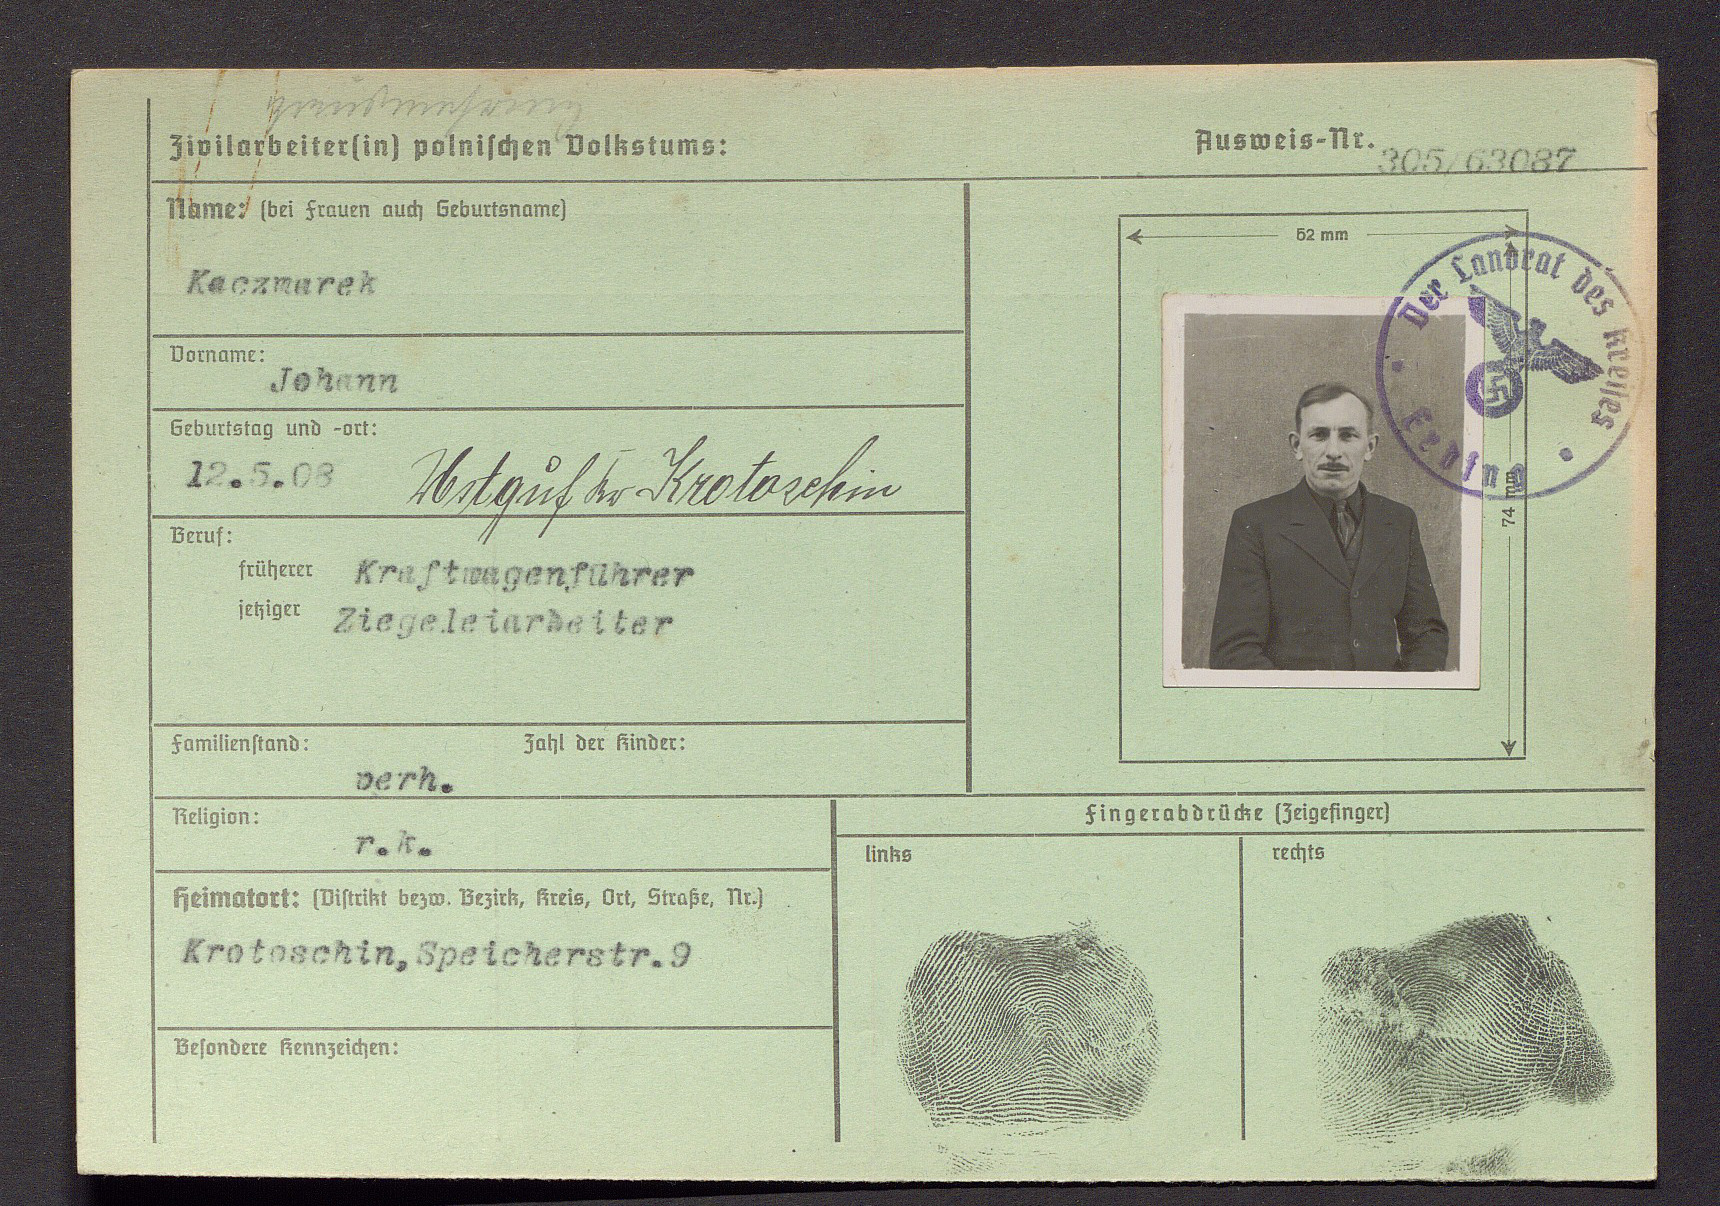 Zivilarbeiter(in) polnischen Volkstums:
Ausweis-Nr. 305/63087
Name: (bei Frauen auch Geburtsname)
Kaczmarek
Vorname:
Johann
Geburtstag und -ort:
12.5.08 Krotoschin
Beruf:
früherer Kraftwagenführer
jetziger Ziegeleiarbeiter
Familienstand: Zahl der Kinder:
verh.
Religion:
r.k.
Heimatort: (Distrikt bezw. Bezirk, Kreis, Ort, Straße, Nr.)
Krotoschin, Speicherstr. 9
Besondere Kennzeichen:
52 mm
74 mm
Der Landrat des Kreises
Erding
Fingerabdrücke (Zeigefinger)
links
rechts